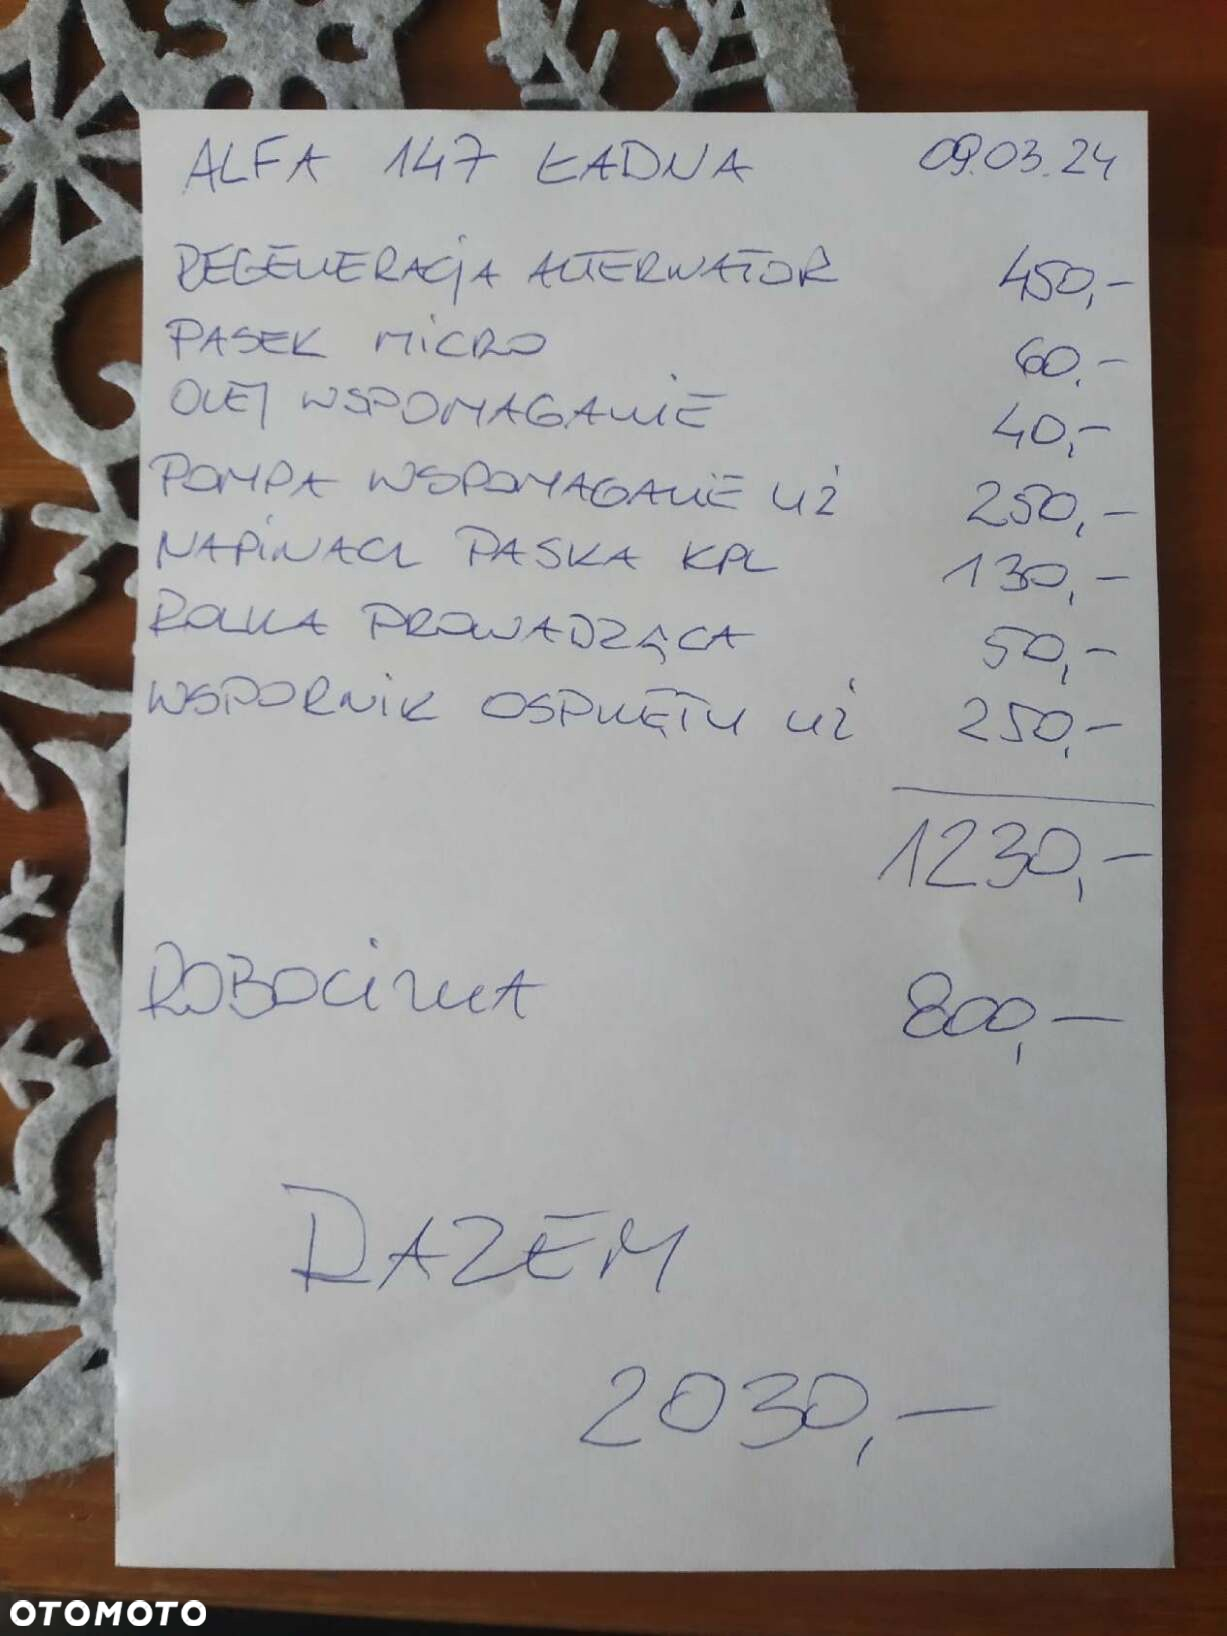 ALFA 147 ŁADNA 09.03.24
REGENERACJA ALTERNATOR 450,-
PASEK MICRO 60.-
OLEJ WSPOMAGANIE 40,-
POMPA WSPOMAGANIE UŻ 250,-
NAPINACZ PASKA KPL 130,-
ROLKA PROWADZĄCA 50,-
WSPORNIK OSPRZĘTU UŻ 250,-
1230,-
ROBOCIZNA 800,-
RAZEM
2030,-
OTOMOTO